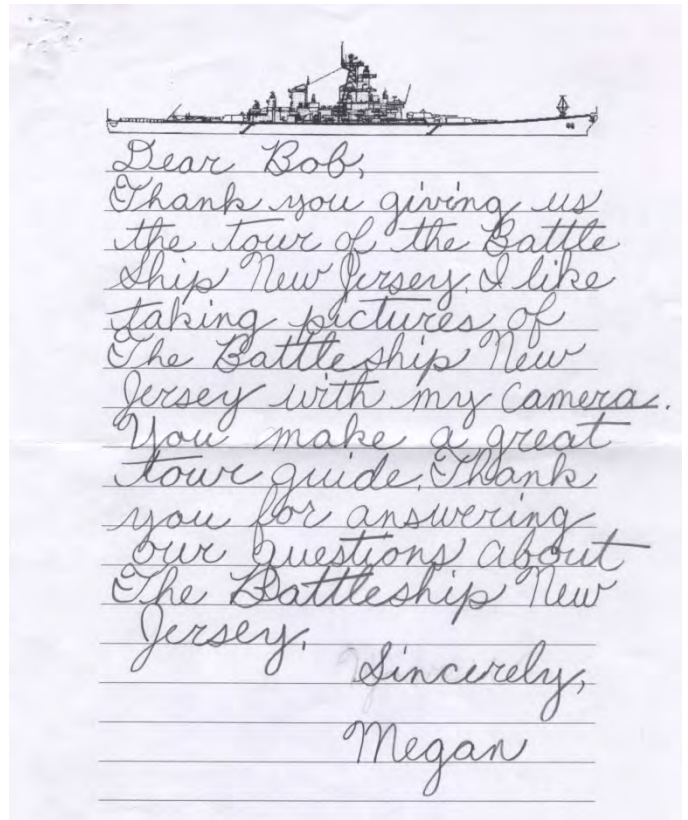 Dear Bob,
Thank you giving us
the tour of the Battle
Ship New Jersey. I like
taking pictures of
The Battleship New
Jersey with my camera.
You make a great
tour guide. Thank
you for answering
our questions about
The Battleship New
Jersey.
Sincerely,
Megan